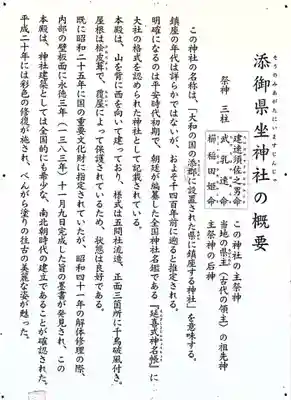 そうのみあがたにいますじんじゃ
添御県坐神社の概要
祭神 三柱
建速須佐之男命 この神社の主祭神
武乳速命 当地の県主(古代の領主)の祖先神
櫛稲田姫命 主祭神の后神
この神社の名称は、「大和の国の添郡に設置された県に鎮座する神社」を意味する。
鎮座の年代は詳らかではないが、およそ千四百年前に遡ると推定される。
明確になるのは平安時代初期で、朝廷が編纂した全国神社名鑑である『延喜式神名帳』に
大社の格式を認められた神社として記載されている。
本殿は、山を背に西を向いて建っており、様式は五間社流造、正面三箇所に千鳥破風付き。
屋根は桧皮葺で、覆屋によって保護されているため、状態は良好である。
既に昭和二十五年に国の重要文化財に指定されていたが、昭和四十一年の解体修理の際、
内部の壁板面に永徳三年(一三八三年)十一月九日完成した旨の墨書が発見され、この
本殿は、神社建築としては全国的にも希少な、南北朝時代の建立であることが確認された。
平成二十年には彩色の修復が施され、べんがら塗りの往古の美麗な姿が甦った。